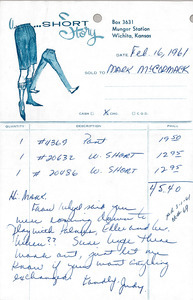 A ....SHORT
Story
Box 3631
Munger Station
Wichita, Kansas
DATE Feb. 16, 1961
SOLD TO Mark McCormack
CASH CHECK
QUANTITY
1 #4369 Pant 19.50
1 # 20632 W. SHORT 12.95
1 # 20486 W. SHORT 12.95
45.40
Hi Mark.
said you
were coming down to
Play with Palmer, Ellis and
When?? Sure hope these
work out, just let me
know if you want anything
exchanged. Fondly, Judy.